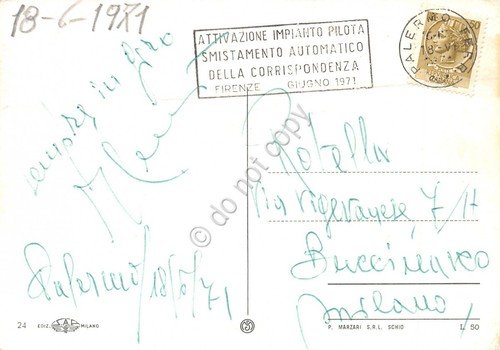 18-6-1971
ATTIVAZIONE IMPIANTO PILOTA
SMISTAMENTO AUTOMATICO
DELLA CORRISPONDENZA
FIRENZE GIUGNO 1971
PALERMO
sempre in giro
Palermo 18/6/71
Rotella
Via Vigevanese 7/A
Buccinasco
Milano
do not copy
24 EDIZ. SAF MILANO
P. MARZARI S.R.L. SCHIO
L. 50